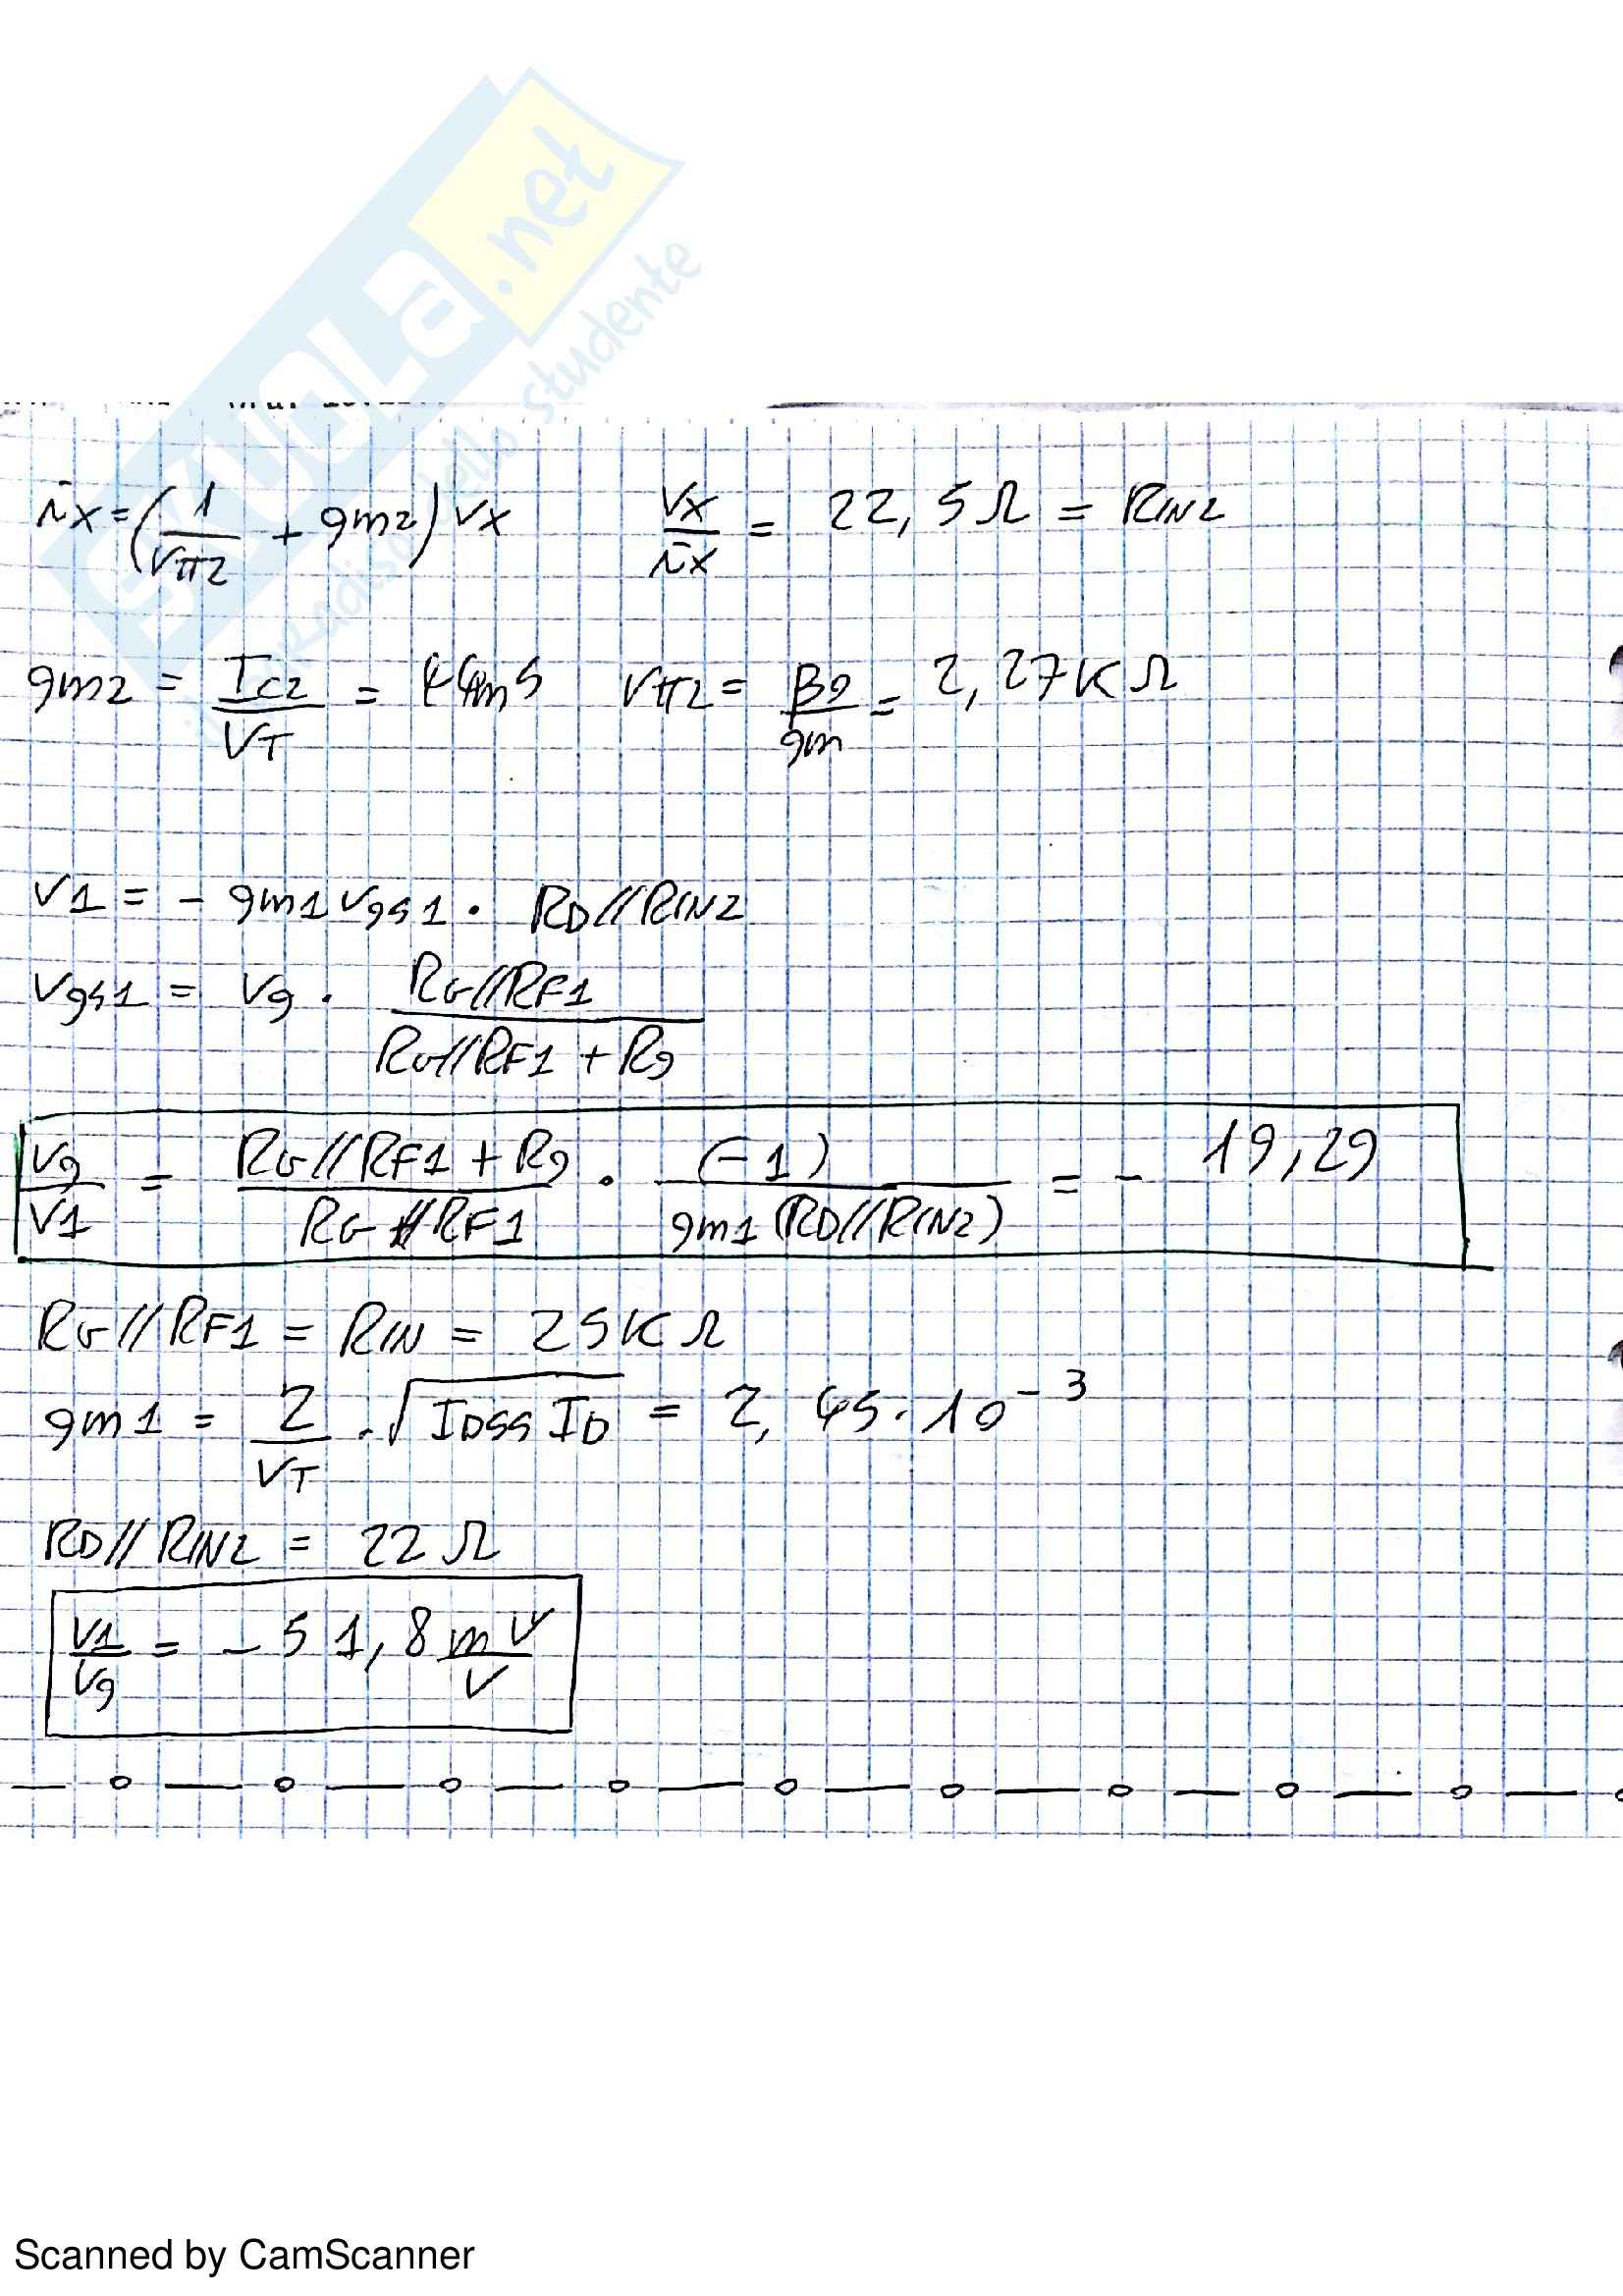 SKUOLA.net
il paradiso dello studente
ix = (1/rπ2 + gm2) vx    vx/ix = 22,5Ω = RIN2
gm2 = IC2/VT = 44mS    rπ2 = β0/gm = 2,27KΩ
v1 = - gm1 vgs1 · RD//RIN2
vgs1 = vg · (RG//RF1)/(RG//RF1 + Rg)
vg/v1 = (RG//RF1 + Rg)/(RG//RF1) · (-1)/(gm1 (RD//RIN2)) = - 19,29
RG//RF1 = RIN = 25KΩ
gm1 = 2/VT · √(IDSS ID) = 2,45·10⁻³
RD//RIN2 = 22Ω
v1/vg = - 51,8 mV/V
Scanned by CamScanner